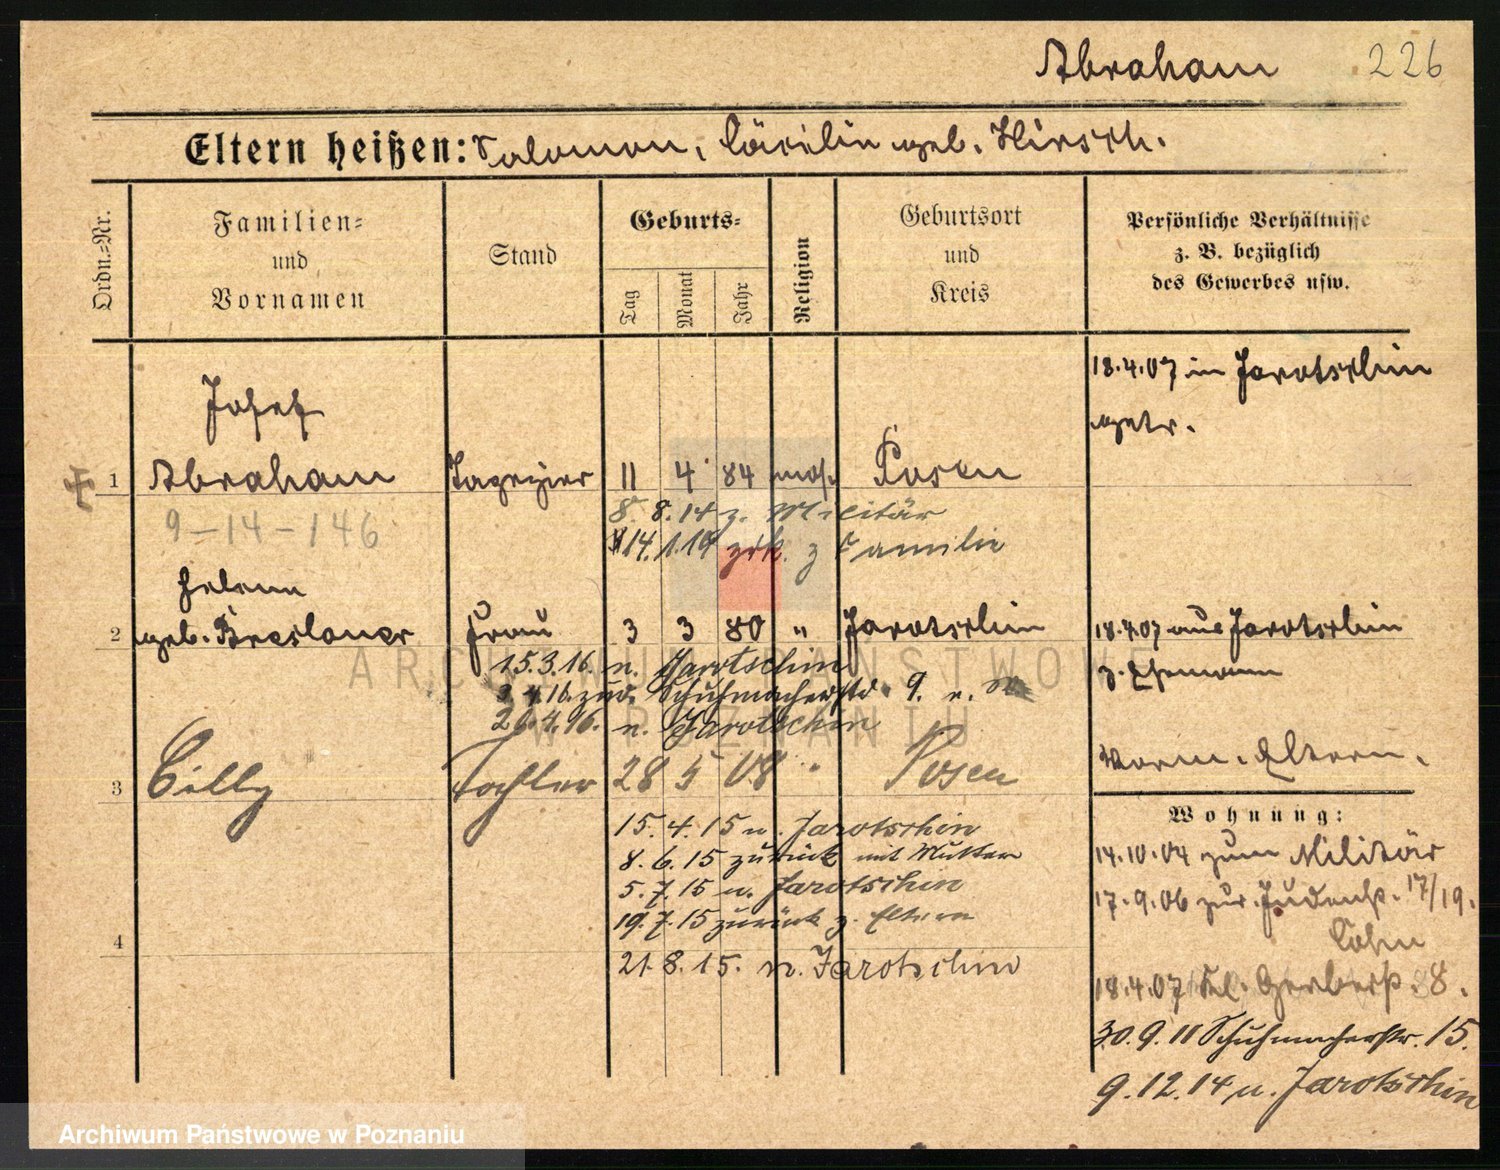 Abraham 226
Eltern heißen: Salomon, Cäcilie geb. Hirsch.
Ordn.-Nr.
Familien-
und
Vornamen
Stand
Geburts-
Tag
Monat
Jahr
Religion
Geburtsort
und
Kreis
Persönliche Verhältnisse
z. B. bezüglich
des Gewerbes usw.
Josef
1 Abraham Tapezier 11 4 84 mos. Posen
9-14-146
8. 8. 14 z. Militär
14. 1. 19 zrk. z Familie
18.4.07 in Jarotschin
getr.
Helene
2 geb. Breslauer Frau 3 3 80 " Jarotschin
15.3.16. n. Jarotschin
3.4.16. zur. Schuhmacherstr. 9. n.
26.4.16. n. Jarotschin
18.4.07 aus Jarotschin
z. Ehemann
3 Cilly Tochter 28 5 08 " Posen
Vorm. Eltern.
15. 4. 15 n. Jarotschin
8. 6. 15 zurück mit Mutter
5. 7. 15 n. Jarotschin
19. 7. 15 zurück z. Eltern
4
21. 8. 15. n. Jarotschin
Wohnung:
14.10.04 zum Militär
17.9.06 zur. Judenstr. 17/19.
Cohn
18.4.07 Gerberstr. 8.
30.9.11 Schuhmacherstr. 15.
9.12.14 n. Jarotschin
ARCHIWUM PAŃSTWOWE
W POZNANIU
Archiwum Państwowe w Poznaniu